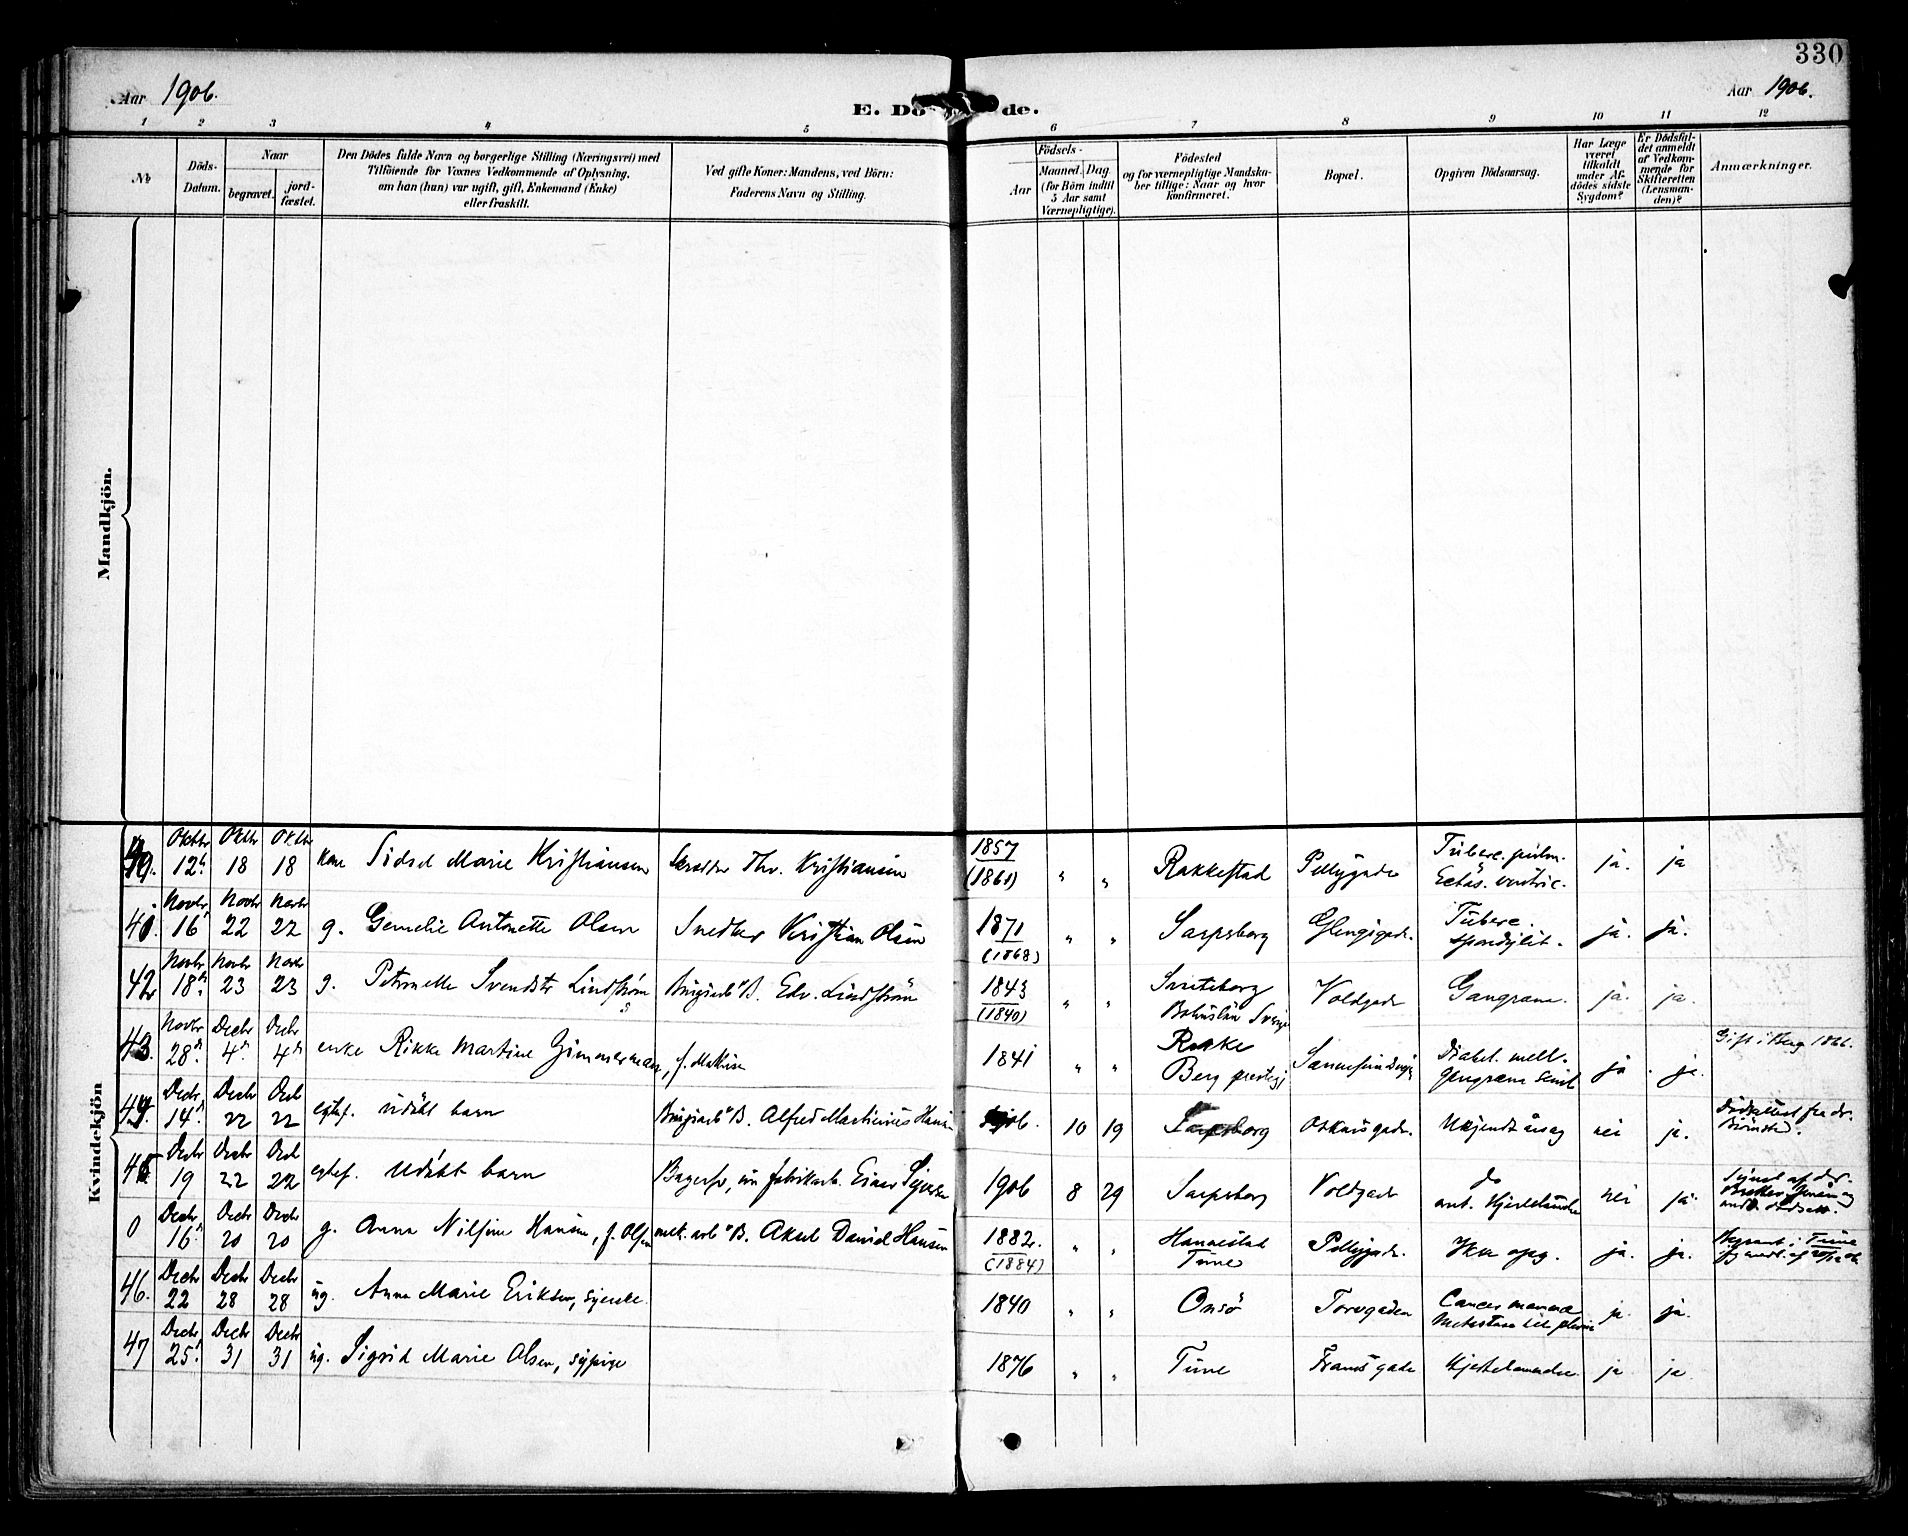 330
Aar 1906.
E. Dö de.
Aar 1906.
1 2 3 4 5 6 7 8 9 10 11 12
No
Döds-Datum.
Naar
begravet.
jord-fæstet.
Den Dödes fulde Navn og borgerlige Stilling (Næringsvei) med
Tilföiende for Voxnes Vedkommende af Oplysning,
om han (hun) var ugift, gift, Enkemand (Enke)
eller fraskilt.
Ved gifte Koner: Mandens, ved Börn:
Faderens Navn og Stilling.
Födsels-
Aar
Maaned. Dag
(for Börn indtil
5 Aar samt
Værnepligtige).
Födested
og for værnepligtige Mandska-
ber tillige: Naar og hvor
konfirmeret.
Bopæl.
Opgiven Dödsaarsag.
Har Læge
været
tilkaldt
under Af-
dödes sidste
Sygdom?
Er Dödsfal-
det anmeldt
af Vedkom-
mende for
Skifteretten
(Lensman-
den)?
Anmærkninger.
Mandkjön.
Kvindekjön
Oktbr 12. Oktbr 18 Oktbr 18 kone Sidsel Marie Kristiansen Skrædder Thv. Kristiansen 1857 (1861) " " Rakkestad Pellygade Tuberc. pulm. Ectas. ventric. ja. ja
41. Novbr 16 Novbr 22 Novbr 22 g. Antonette Olsen Snedker Kristian Olsen 1871 (1868) " " Sarpsborg Glengsgd. Tuberc. spondylit. ja. ja.
42 Novbr 18. Novbr 23 Novbr 23 g. Petronelle Svendsdtr Lindstrøm Brugsarb. B. Edv. Lindstrøm 1843 (1840) " " Bohuslän Sverige Voldgade Gangræna. ja. ja.
43. Novbr 28. Decbr 4. Decbr 4 enke Rikke Martine Zimmerman, f. Mathisen 1841 " " Rokke Berg prestegj Diabet. mell. Gangræna senil ja. ja. Gift i Berg 1866.
44. Decbr 14 Decbr 22 Decbr 22 egtef. udøbt barn Brugsarb. B. Alfred Martinius Hansen 1906. 10 19 Sarpsborg Oskarsgade. Ukjendt årsag nei ja.
45 Decbr 19 Decbr 22 Decbr 22 egtef. udøbt barn Bagersv, nu fabrikarb. Einar 1906 8 29 Sarpsborg Voldgade do ant. Hjertelammelse nei ja.
0 Decbr 16 Decbr 20 Decbr 20 g. Anna Nilsine Hansen, f. Olsen mek. arb. B. Aksel David Hansen 1882. (1884) " " Hannestad Tune Pellygade. ja. ja.
46. Decbr 22 Decbr 28 Decbr 28 ug. Anna Marie Eriksen, syerske. 1840 " " Onsö Torvgaden Cancer mammæ Metastase til pleura ja. ja.
47 Decbr 25. Decbr 31 Decbr 31 ug. Sigrid Marie Olsen, sypige 1876 " " Tune gade Hjertelammelse. ja ja.